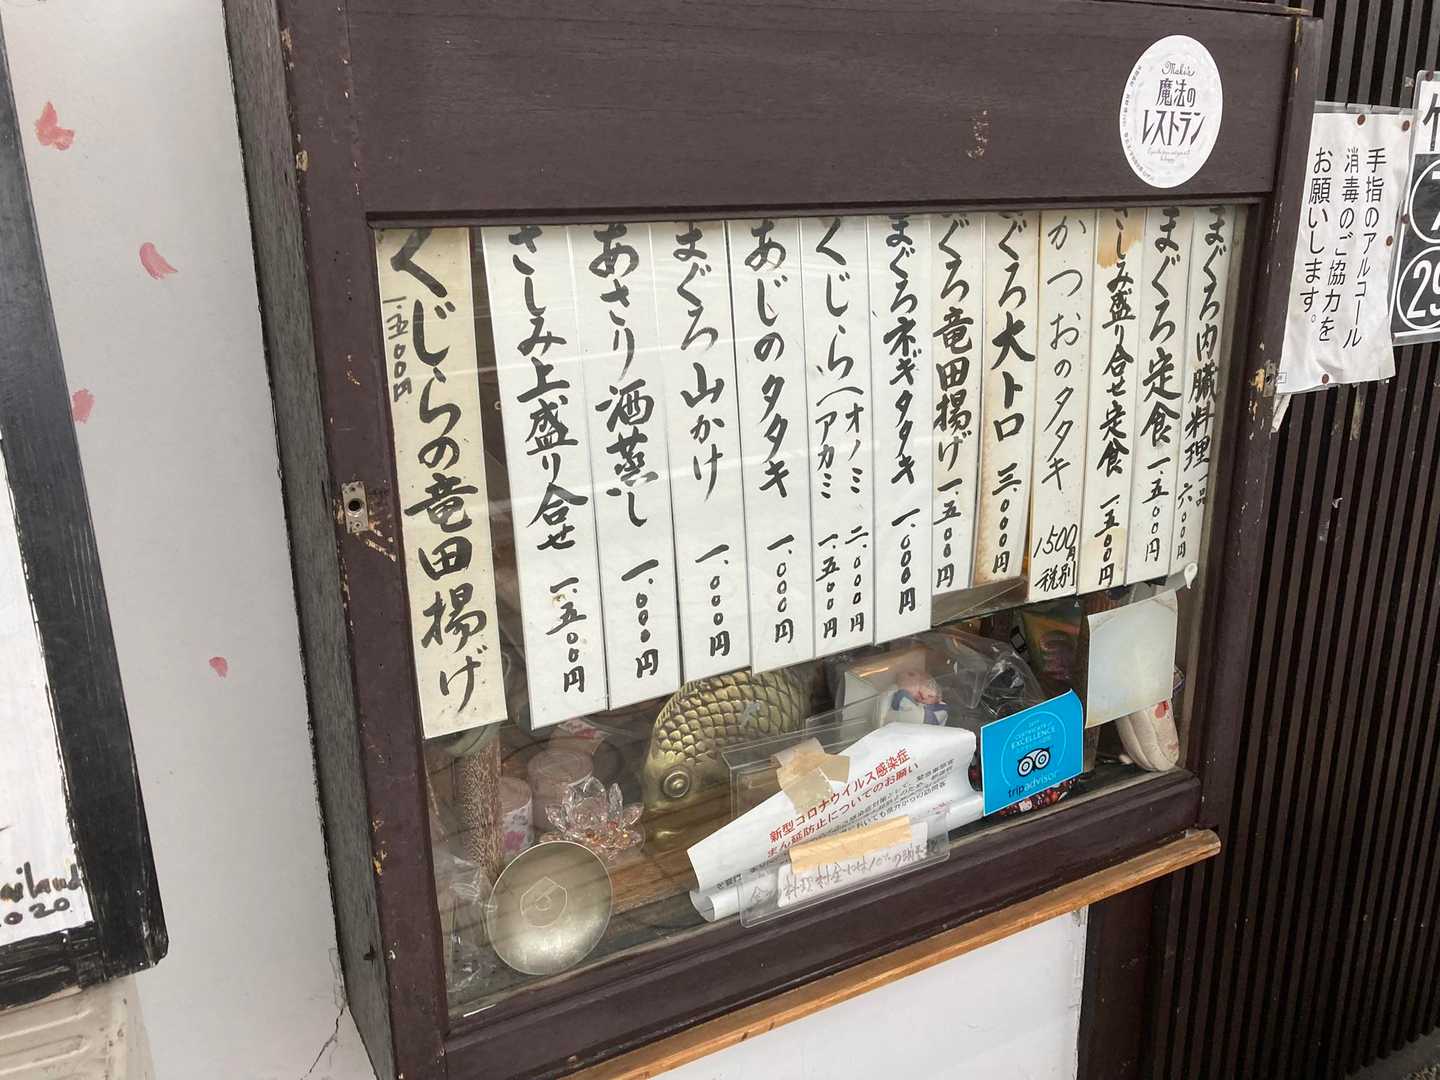 Maki's
魔法の
レストラン
手指のアルコール
消毒のご協力を
お願いします。
7
29
まぐろ内臓料理一品 六〇〇円
まぐろ定食 一.五〇〇円
さしみ盛り合せ定食 一.五〇〇円
かつおのタタキ 1500円
税別
ぐろ大トロ 三.〇〇〇円
ぐろ竜田揚げ 一.五〇〇円
まぐろネギタタキ 一.〇〇〇円
くじら(オノミ 二.〇〇〇円
(アカミ 一.五〇〇円
あじのタタキ 一.〇〇〇円
まぐろ山かけ 一.〇〇〇円
あさり酒蒸し 一.〇〇〇円
さしみ上盛り合せ 一.五〇〇円
くじらの竜田揚げ
一.五〇〇円
新型コロナウイルス感染症
まん延防止についてのお願い
CERTIFICATE of
EXCELLENCE
tripadvisor
2020